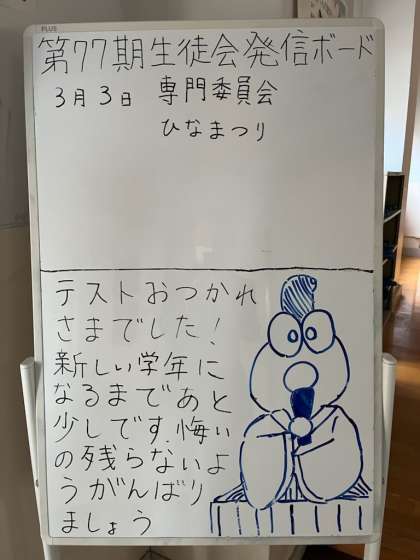 PLUS
第77期生徒会発信ボード
3月3日 専門委員会
ひなまつり
テストおつかれ
さまでした!
新しい学年に
なるまであと
少しです.悔い
の残らないよ
うがんばり
ましょう